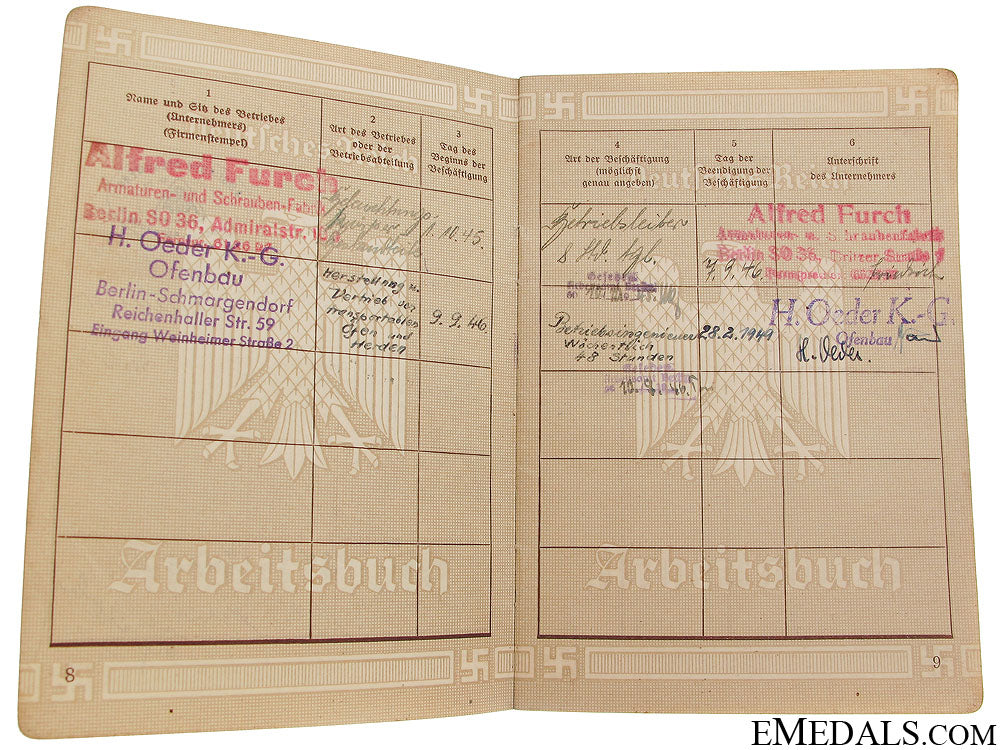 1
Name und Sitz des Betriebes
(Unternehmers)
(Firmenstempel)
2
Art des Betriebes
oder der
Betriebsabteilung
3
Tag des
Beginns der
Beschäftigung
Alfred Furch
Armaturen- und Schrauben-Fabrik
Berlin SO 36, Admiralstr.
1.10.45.
H. Oeder K.-G.
Ofenbau
Berlin-Schmargendorf
Reichenhaller Str. 59
Eingang Weinheimer Straße 2
Herstellung u.
Vertrieb von
transportablen
Öfen und
Herden
9.9.46.
Arbeitsbuch
8
4
Art der Beschäftigung
(möglichst
genau angeben)
5
Tag der
Beendigung der
Beschäftigung
6
Unterschrift
des Unternehmers
Betriebsleiter
8 Std. tgl.
7.9.46
Alfred Furch
Armaturen- u. Schraubenfabrik
Berlin SO 36,
Betriebsingenieur
Wöchentlich
48 Stunden
28.2.1949
H. Oeder K.-G.
Ofenbau
H. Oeder.
Arbeitsbuch
9
EMEDALS.COM